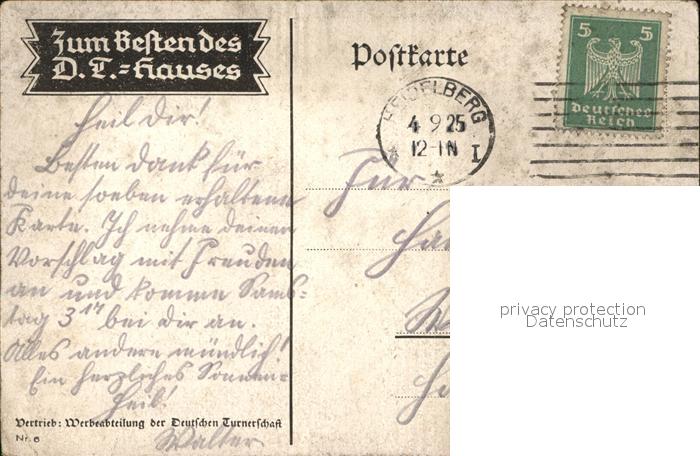 Zum Besten des
D. T.=Hauses
Postkarte
5 5
Deutsches
Reich
HEIDELBERG
4 9 25
12-1N
I
Heil dir!
Besten Dank für
deine soeben erhaltene
Karte. Ich nehme deinen
Vorschlag mit Freuden
an und komme Sams-
tag 3¹⁷ bei dir an.
Alles andere mündlich!
Ein herzliches Sonnen-
heil!
Walter
Vertrieb: Werbeabteilung der Deutschen Turnerschaft
Nr. 6
privacy protection
Datenschutz